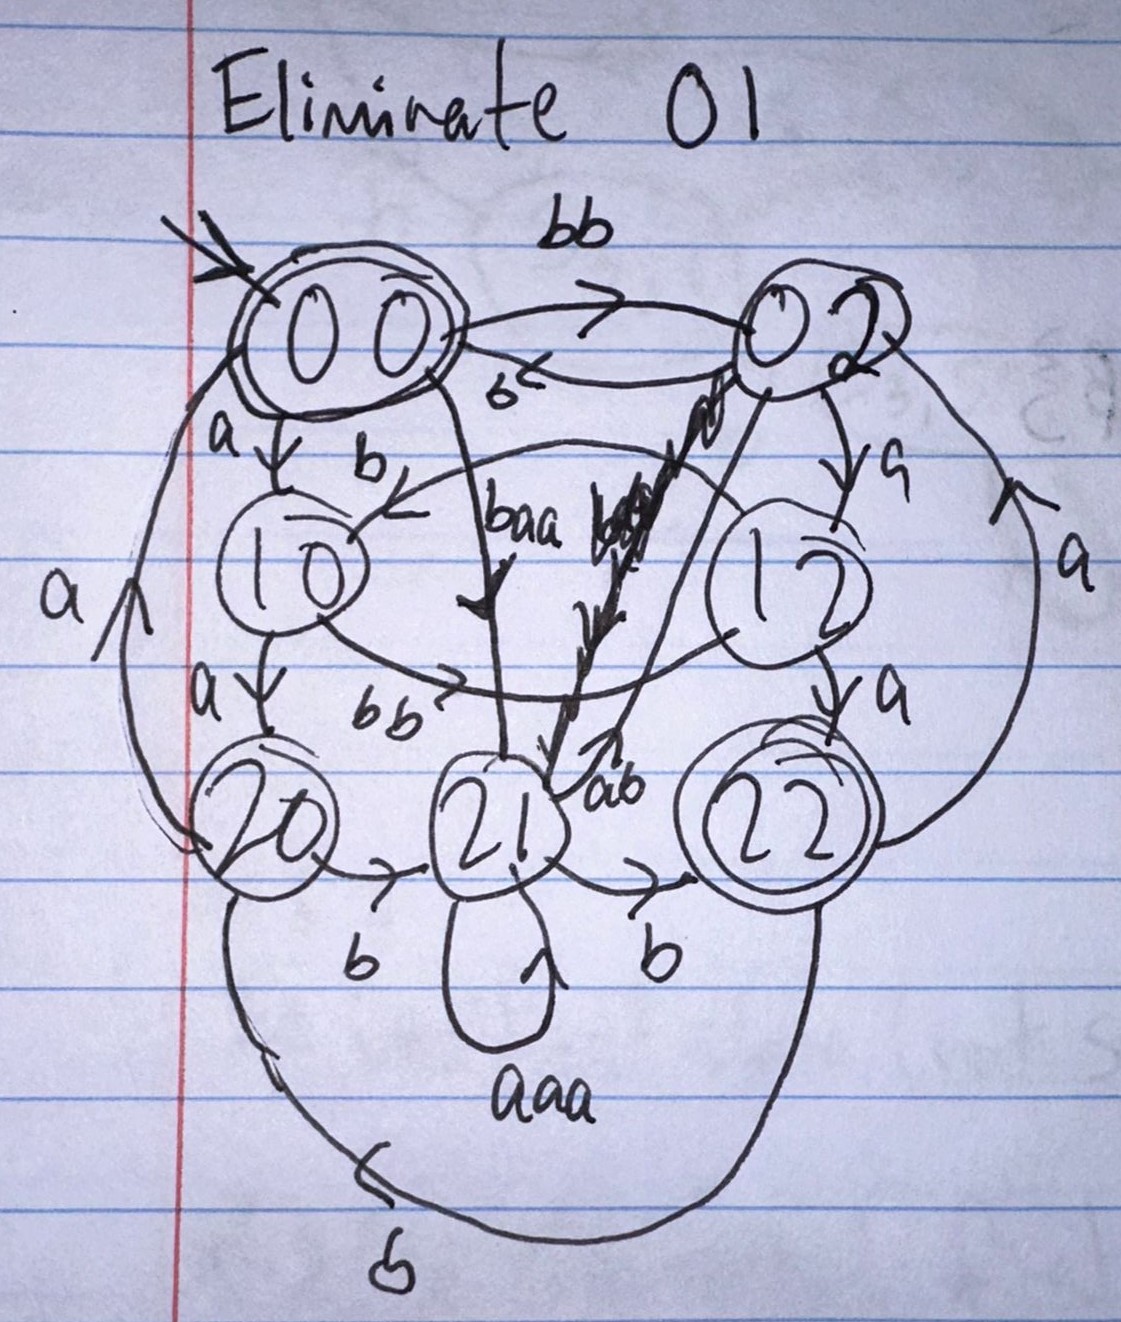 Eliminate 01
bb
00
02
b
a
b
a
baa
10
12
a
a
a
bb
a
ab
20
21
22
b
b
aaa
b